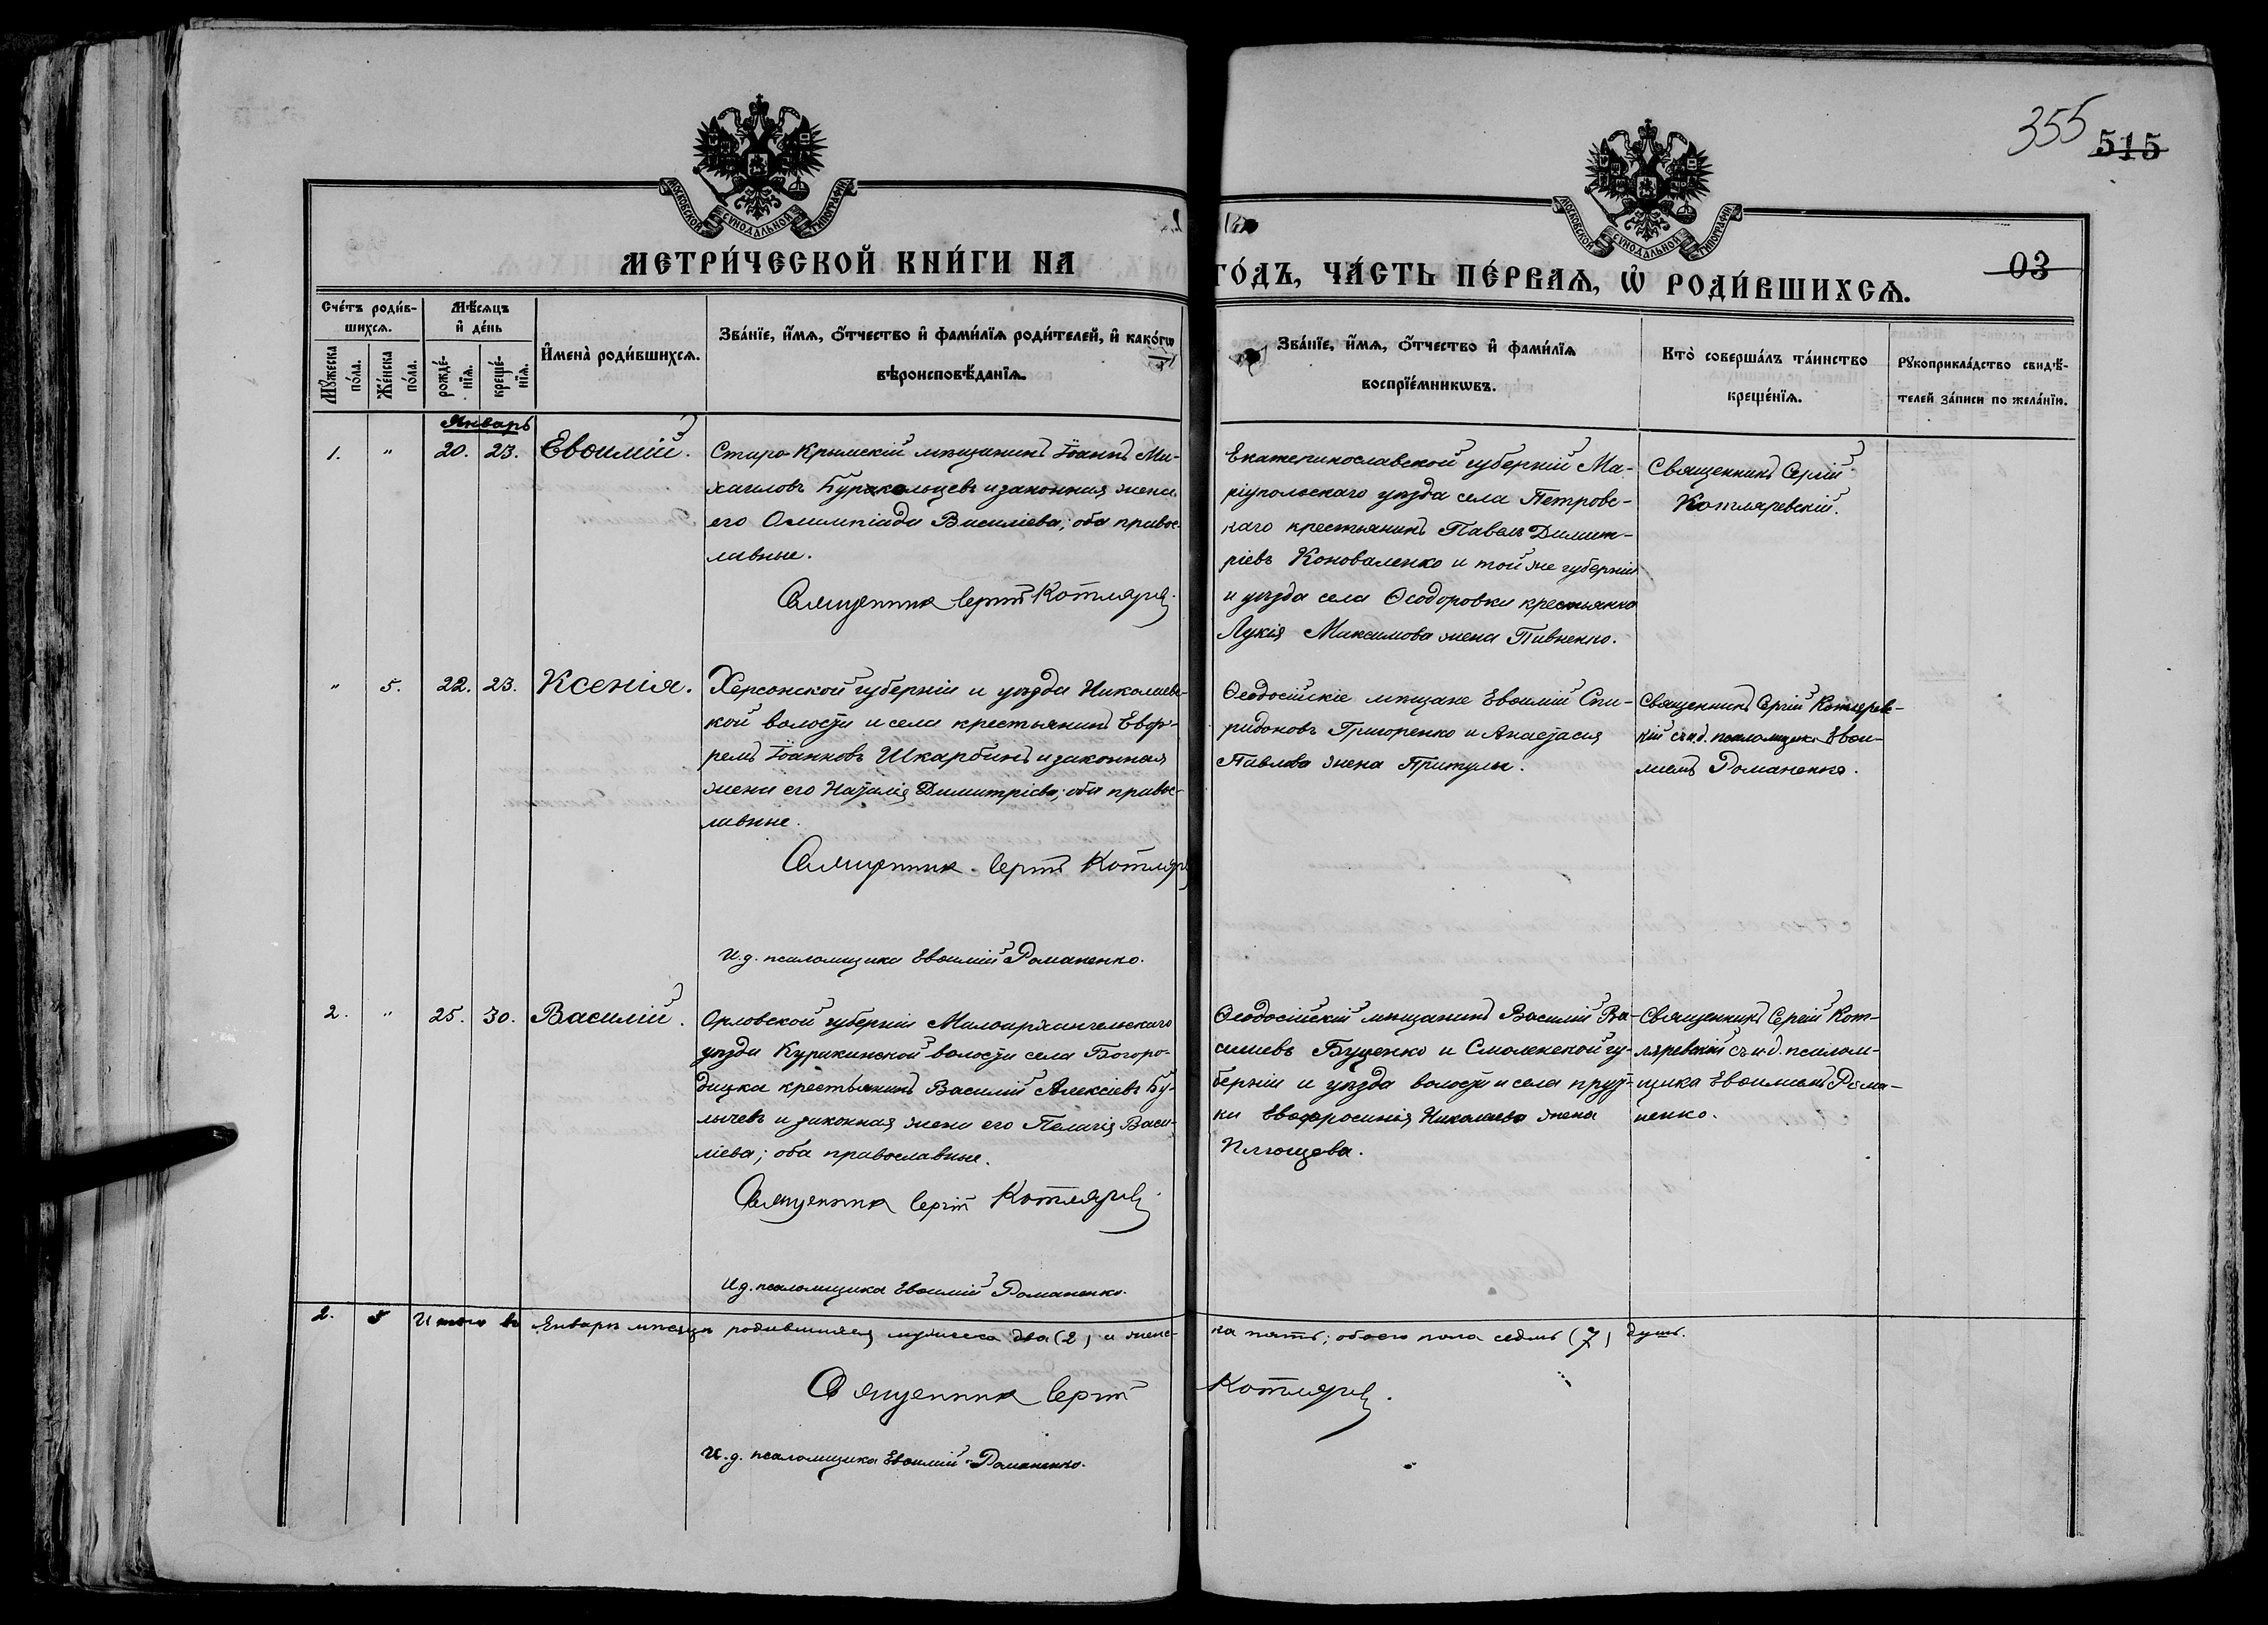 355
515
МОСКОВСКОЙ СѴНОДАЛЬНОЙ ТИПОГРАФІИ
МОСКОВСКОЙ СѴНОДАЛЬНОЙ ТИПОГРАФІИ
МЕТРИ́ЧЕСКОЙ КНИ́ГИ НА
ГО́ДЪ, ЧА́СТЬ ПЕ́РВАѦ, Ѡ҆ РОДИ́ВШИХСѦ.
03
Сче́тъ роди́в-
шихсѧ.
Мꙋ́жеска
по́ла.
Же́нска
по́ла.
Мѣ́сѧцъ
и҆ де́нь
рожде́-
нїѧ.
креще́-
нїѧ.
И҆мена̀ роди́вшихсѧ.
Зва́нїе, и҆́мѧ, ѻ҆́тчество и҆ фами́лїѧ роди́телей, и҆ како́гѡ
вѣроисповѣ́данїѧ.
Зва́нїе, и҆́мѧ, ѻ҆́тчество и҆ фами́лїѧ
воспрїе́мникѡвъ.
Кто̀ соверша́лъ та́инство
креще́нїѧ.
Рꙋкоприкла́дство свидѣ́-
телей за́писи по жела́нїю.
Январь
1. " 20. 23. Евѳимій.
Старо-Крымскій мѣщанинъ Іоаннъ Ми-
хаиловъ Буракольцевъ и законная жена
его Олимпіада Василіева; оба правос-
лавные.
Священникъ Сергій Котлярев.
Екатеринославской губерніи Ма-
ріупольскаго уѣзда села Петровс-
каго крестьянинъ Павелъ Димит-
ріевъ Коноваленко и той же губерніи
и уѣзда села Ѳеодоровки крестьянка
Лукія Максимова жена Пивненко.
Священникъ Сергій
Котляревскій.
" 5. 22. 23. Ксенія.
Херсонской губерніи и уѣзда Николаевс-
кой волости и села крестьянинъ Евф-
ремъ Іоанновъ Шкарбинъ и законная
жена его Наталія Димитріева; оба правос-
лавные.
Священникъ Сергій Котляр
И.д. псаломщика Евѳимій Романенко.
Ѳеодосійскіе мѣщане Евѳимій Спи-
ридоновъ Григоренко и Анастасія
Павлова жена Притулы.
Священникъ Сергій Котляревс-
кій съ и.д. псаломщик. Евѳи-
міемъ Романенко.
2. " 25. 30. Василій.
Орловской губерніи Малоархангельскаго
уѣзда Куракинской волости села Богоро-
дицка крестьянинъ Василій Алексіевъ Бу-
лычевъ и законная жена его Пелагія Васи-
ліева; оба православные.
Священникъ Сергій Котлярев
И.д. псаломщика Евѳимій Романенко.
Ѳеодосійскій мѣщанинъ Василій Ва-
силиевъ Буценко и Смоленской гу-
берніи и уѣзда волости и села пруд-
ки Евфросинія Николаева жена
Плющева.
Священникъ Сергій Кот-
ляревскій съ и.д. псалом-
щика Евѳиміемъ Рома-
ненко.
2. 5 Итого въ Январѣ мѣсяцѣ родившихся мужеска два (2) и женс-
ка пять; обоего пола седмь (7) душъ.
Священникъ Сергій
Котлярев.
И.д. псаломщика Евѳимій Романенко.